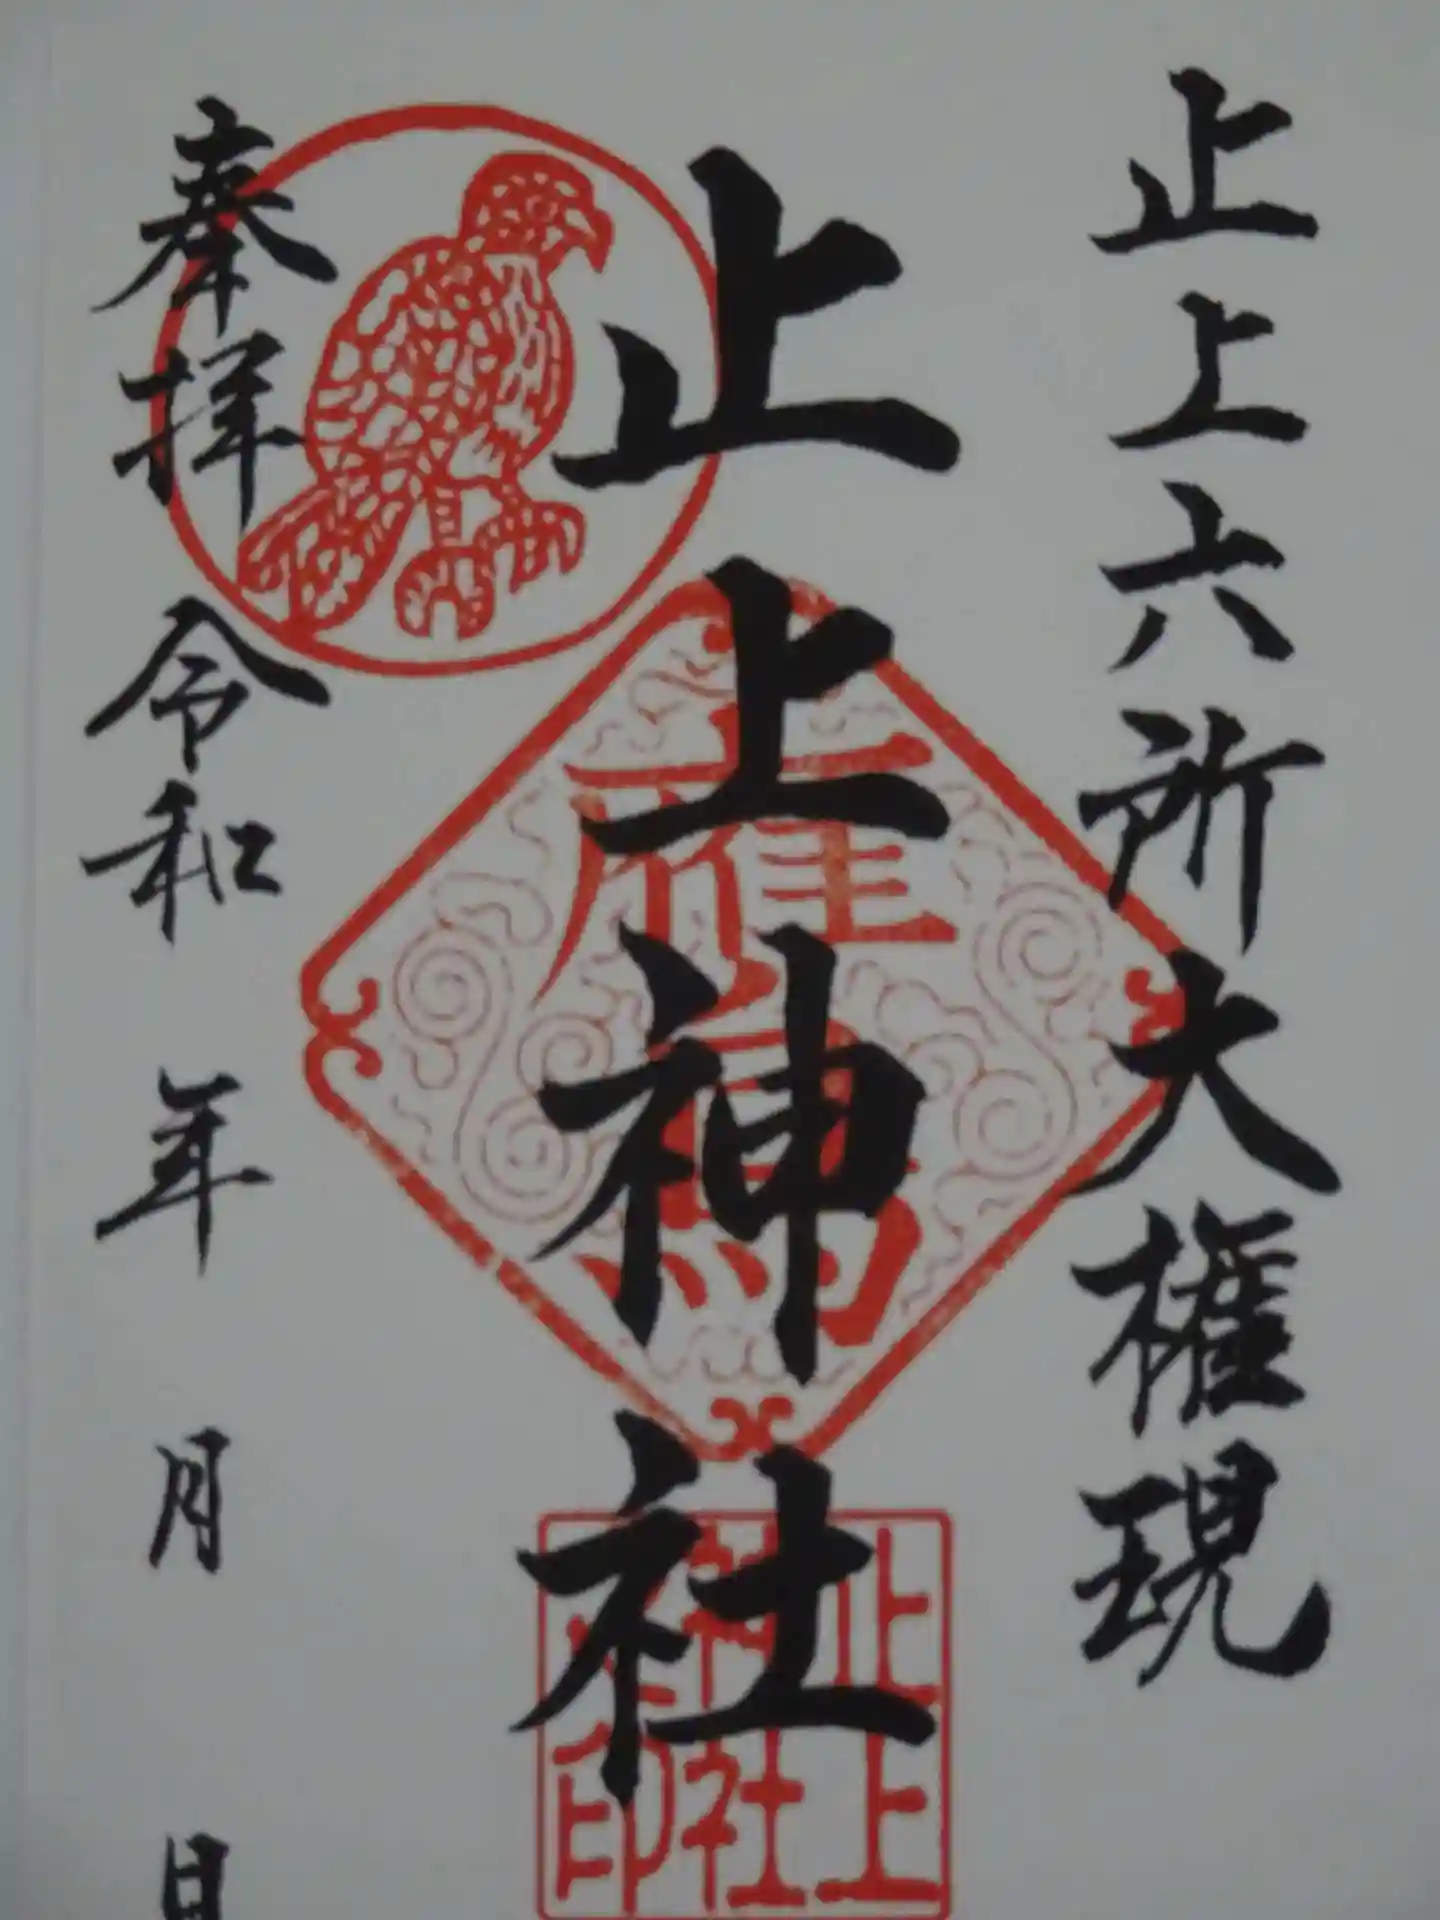 止上六所大権現
止上神社
奉拝 令和 年 月 日
鷹
止上
神社
印